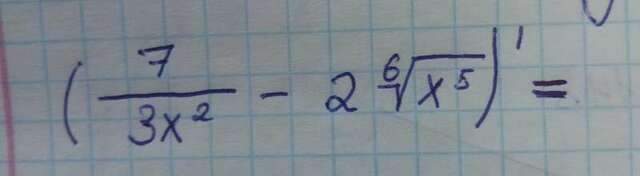 (7/(3x²) - 2 ⁶√(x⁵))' =